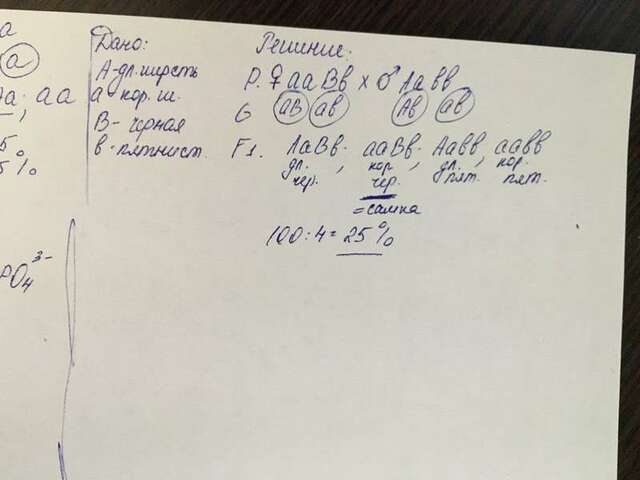 а
а
Аа, аа
5
5%
PO₄³⁻
Дано:
А-дл. шерсть
а кор. ш.
В- чёрная
в- пятнист.
Решение:
P. ♀ ааВв х ♂ Аавв
G аВ ав Ав ав
F1. АаВв, ааВв, Аавв, аавв
дл. кор. дл. кор.
чер. чер. пят. пят.
= самка
100:4= 25%